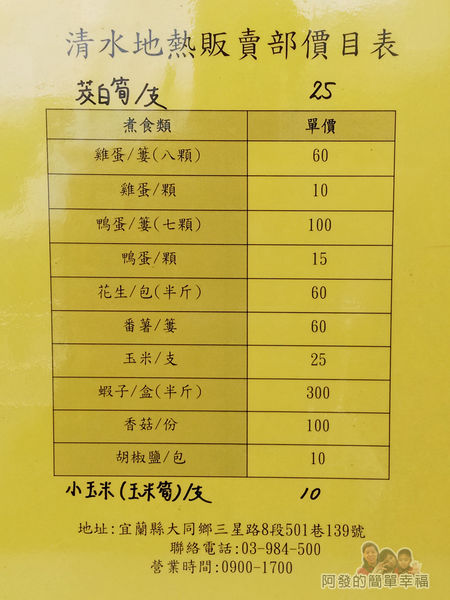 清水地熱販賣部價目表
茭白筍/支 25
煮食類 單價
雞蛋/簍(八顆) 60
雞蛋/顆 10
鴨蛋/簍(七顆) 100
鴨蛋/顆 15
花生/包(半斤) 60
番薯/簍 60
玉米/支 25
蝦子/盒(半斤) 300
香菇/份 100
胡椒鹽/包 10
小玉米(玉米筍)/支 10
地址:宜蘭縣大同鄉三星路8段501巷139號
聯絡電話:03-984-500
營業時間:0900-1700
阿發的簡單幸福